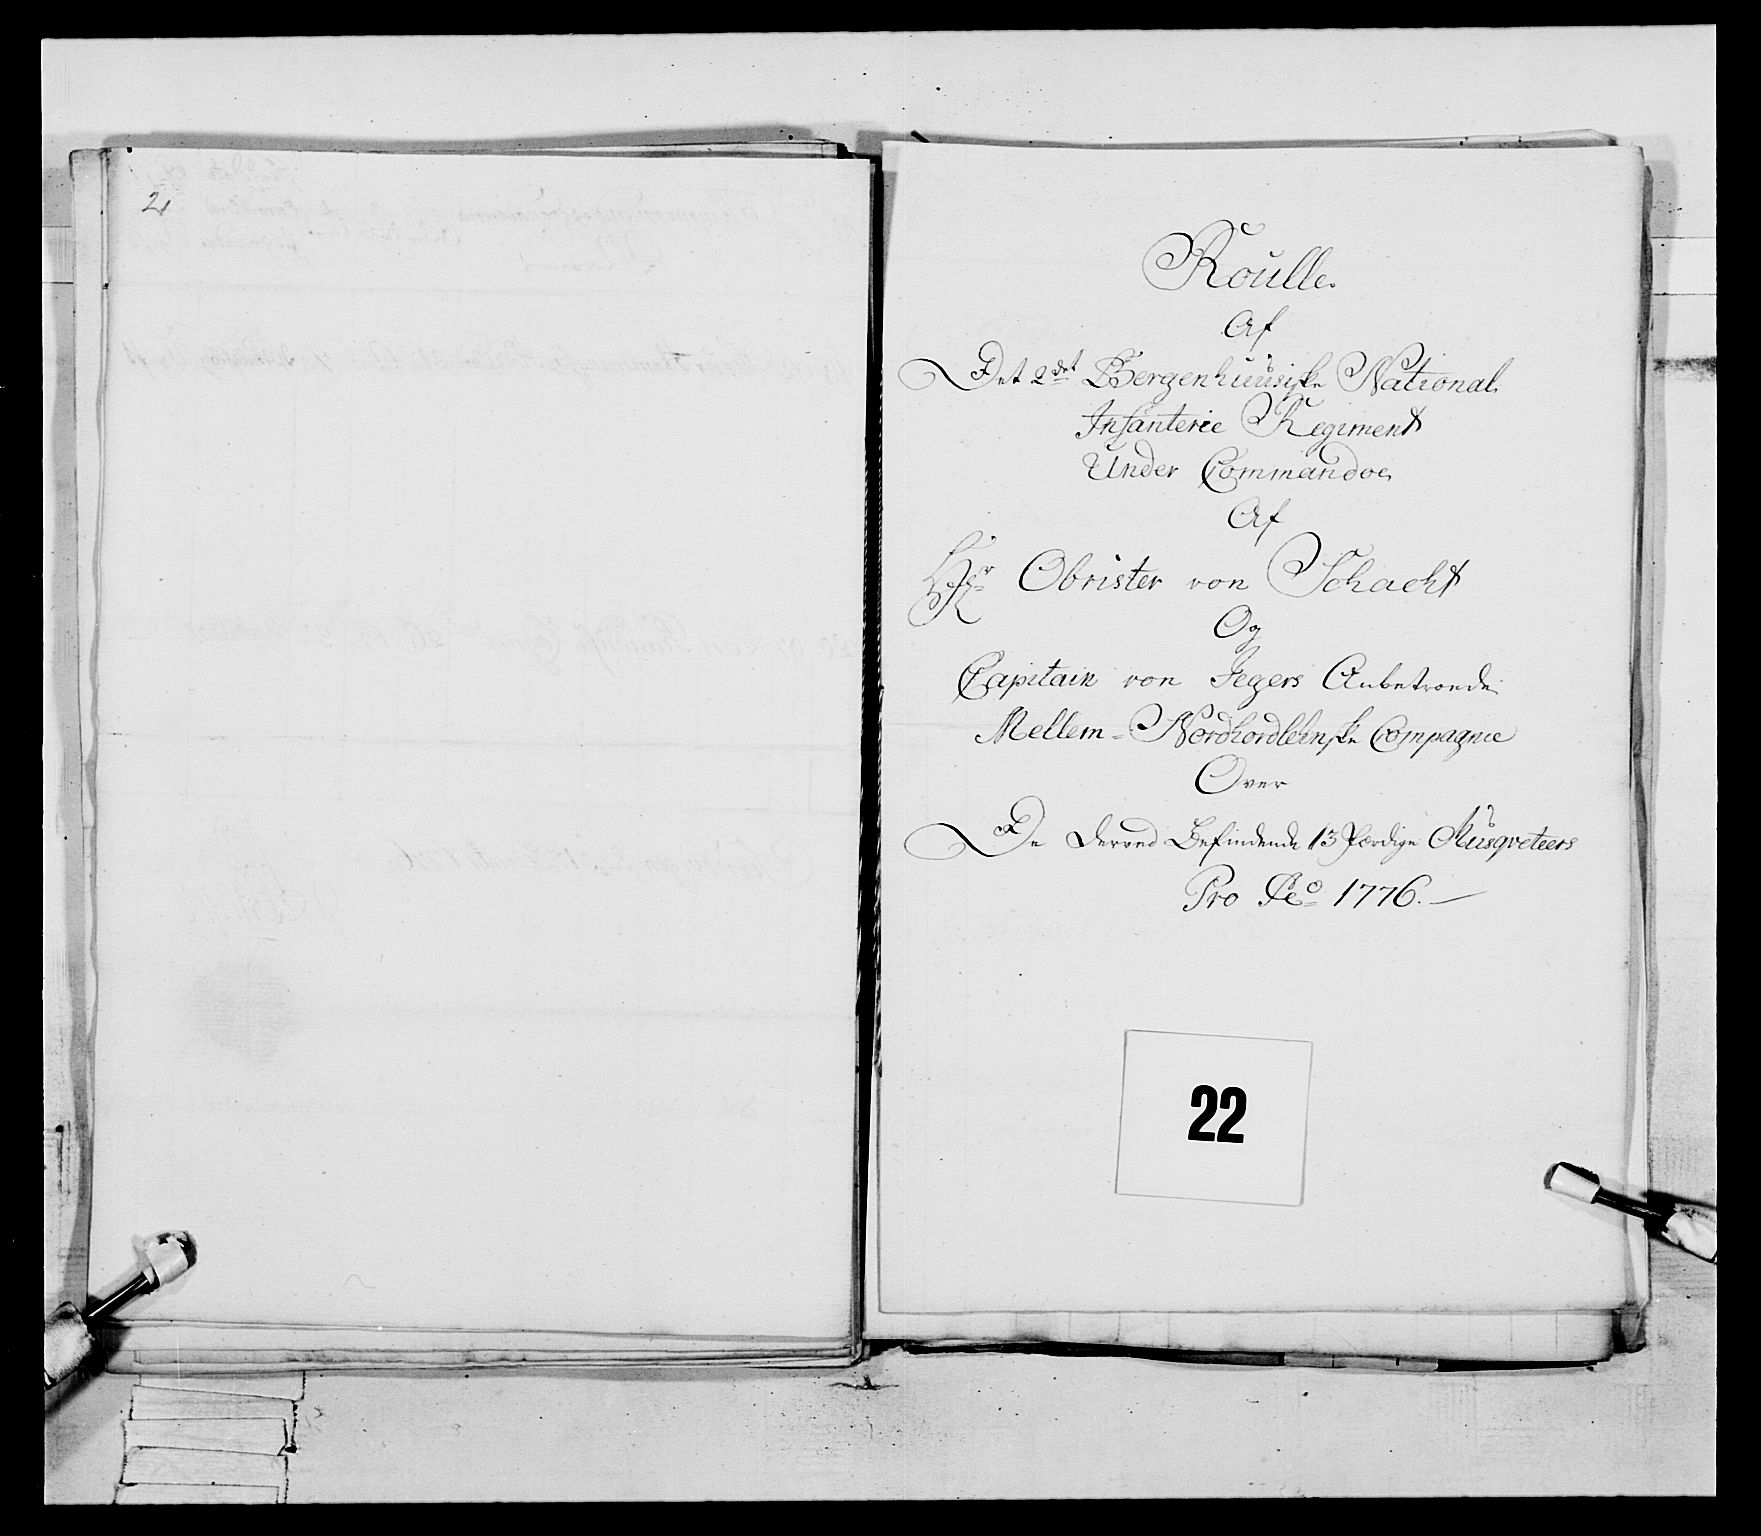 2
Roulle
Af
Det 2det Bergenhuusiske National
Infanterie Regiment
Under Commandoe
Af
Hr Obrister von Schacht
Og
Capitain von Jegers Anbetroede
Mellem-Nordhordlehnske Compagnie
Over
De derved Befindende 13 Færdige Musqveteers
Pro Feo 1776.
22